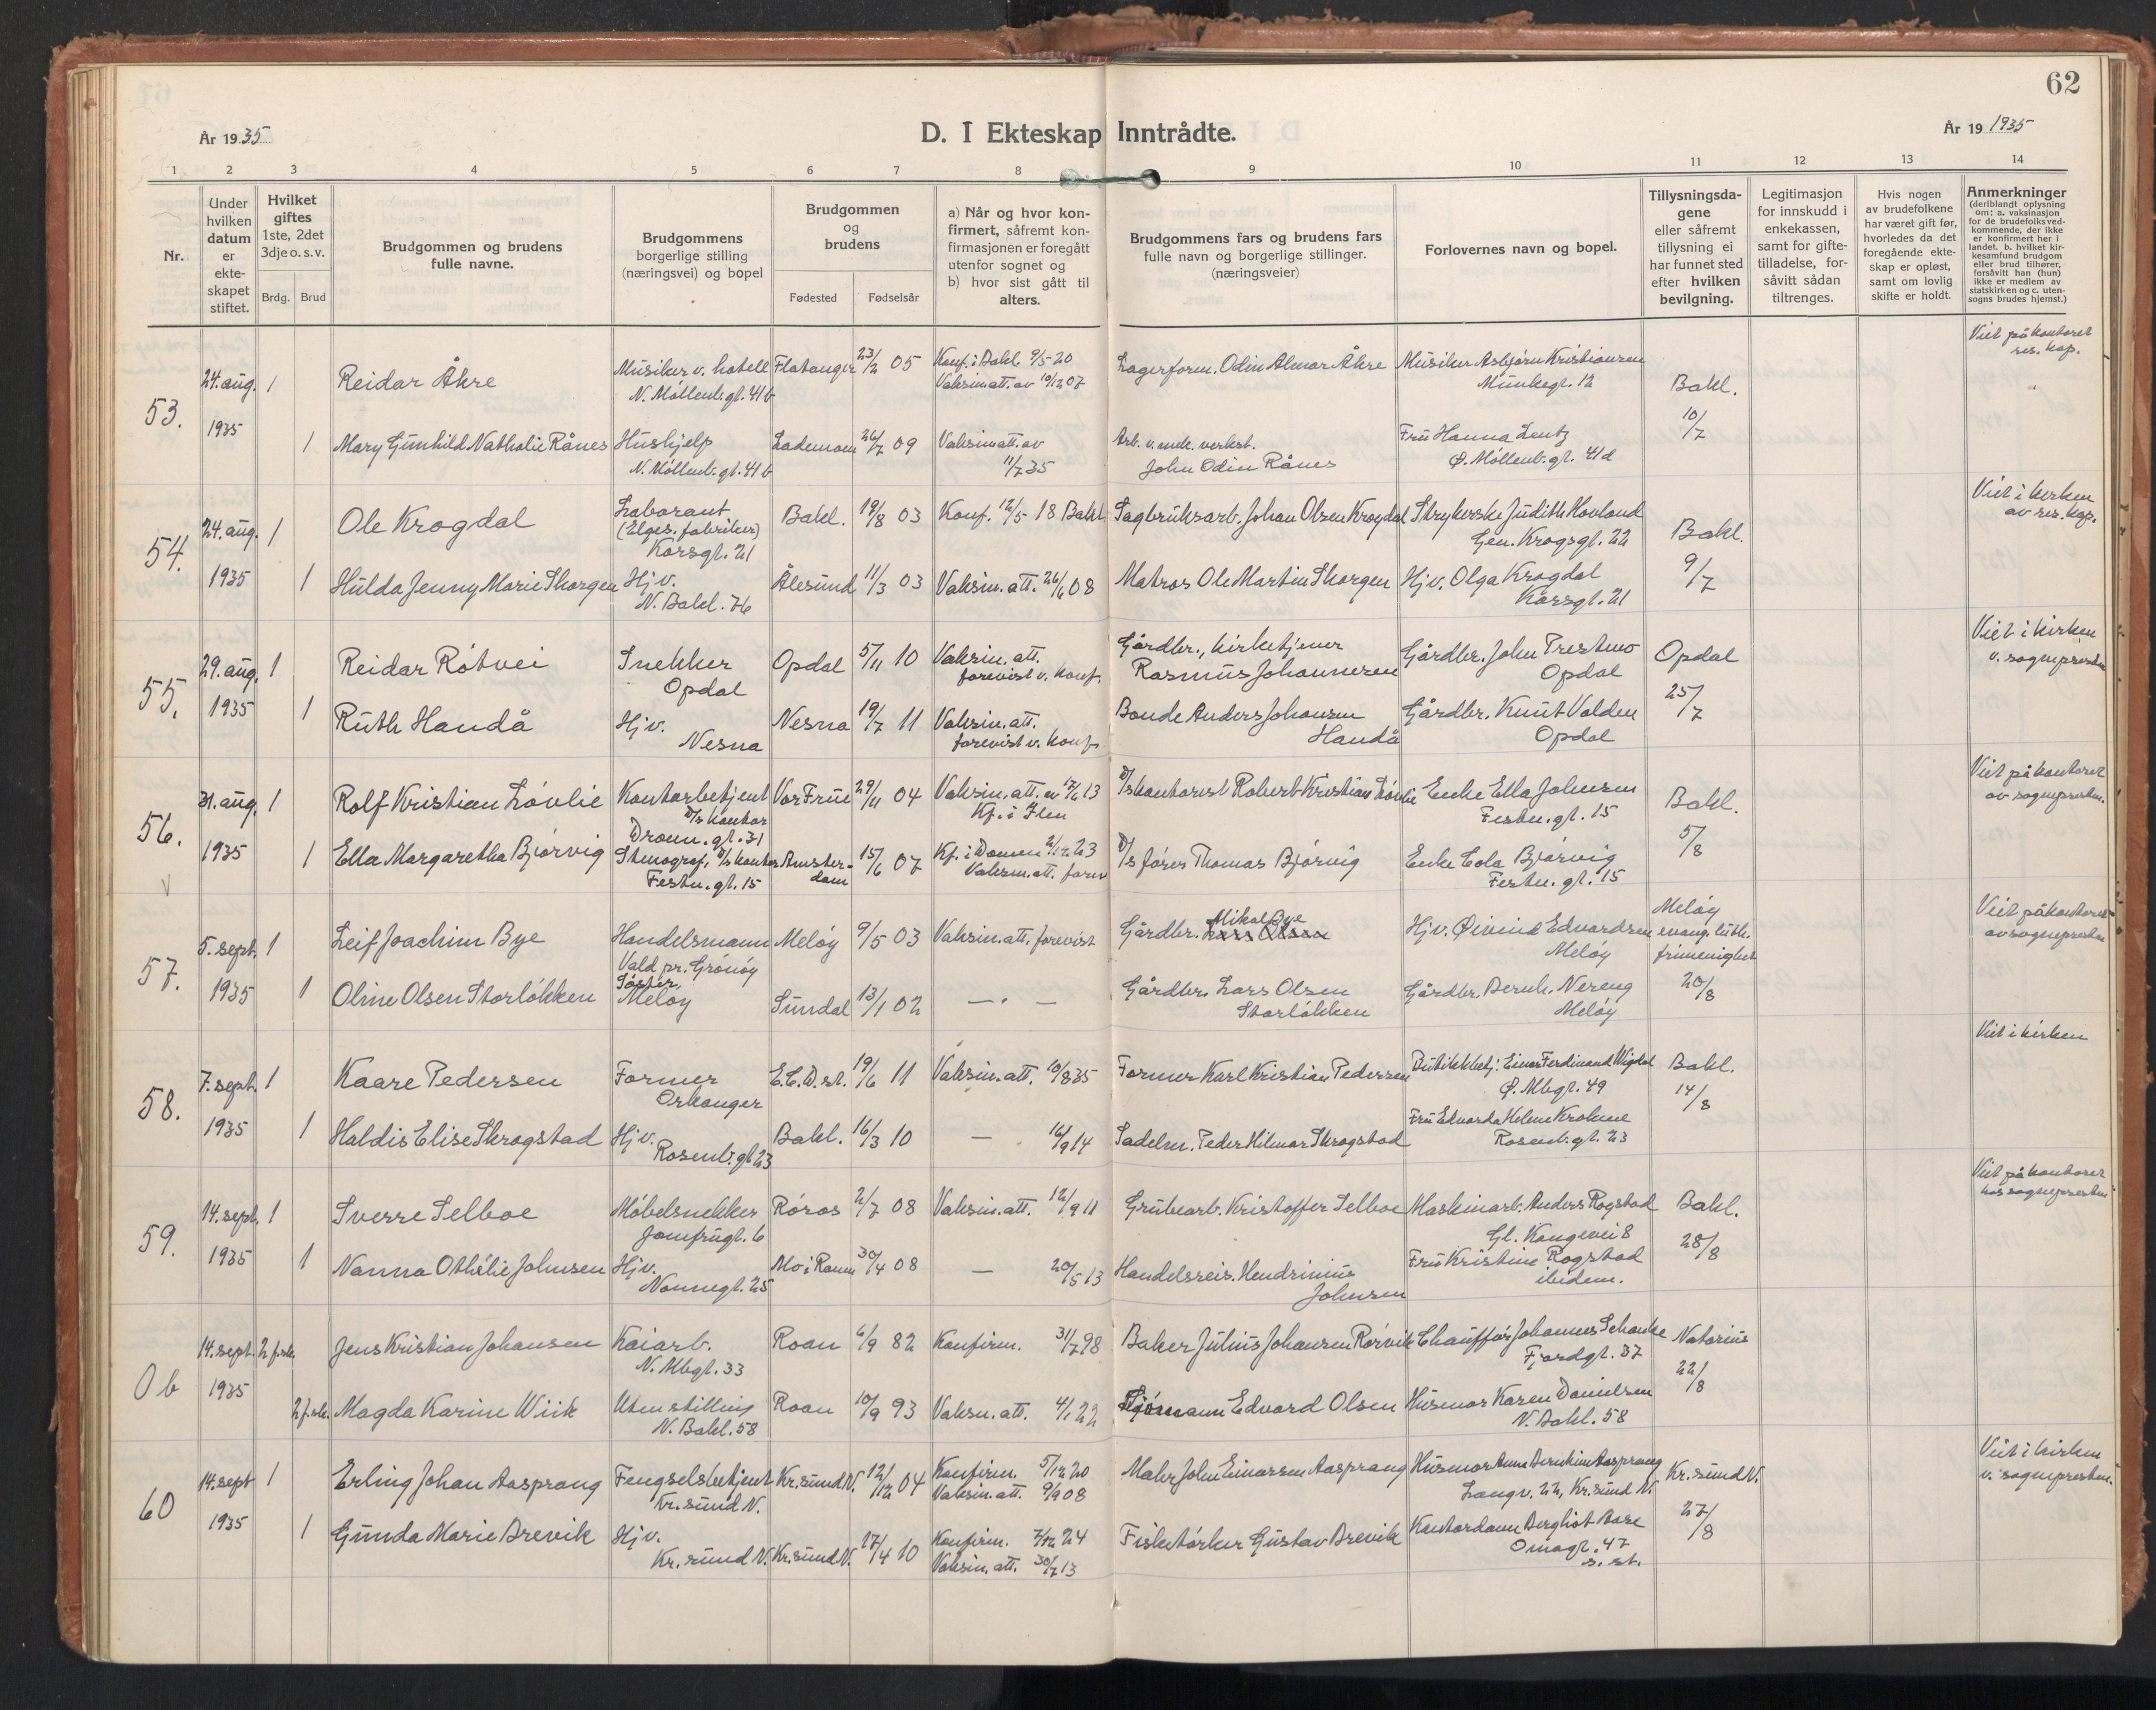 62
År 1935
D. I Ekteskap Inntrådte.
År 19 1935
1 2 3 4 5 6 7 8 9 10 11 12 13 14
Nr.
Under hvilken datum er ekte-skapet stiftet.
Hvilket giftes 1ste, 2det 3dje o. s. v.
Brdg. Brud
Brudgommen og brudens fulle navne.
Brudgommens borgerlige stilling (næringsvei) og bopel
Brudgommen og brudens
Fødested Fødselsår
a) Når og hvor kon-firmert, såfremt kon-firmasjonen er foregått utenfor sognet og
b) hvor sist gått til alters.
Brudgommens fars og brudens fars fulle navn og borgerlige stillinger. (næringsveier)
Forlovernes navn og bopel.
Tillysningsda-gene eller såfremt tillysning ei har funnet sted efter hvilken bevilgning.
Legitimasjon for innskudd i enkekassen, samt for gifte-tilladelse, for-såvitt sådan tiltrenges.
Hvis nogen av brudefolkene har været gift før, hvorledes da det foregående ekte-skap er opløst, samt om lovlig skifte er holdt.
Anmerkninger (deriblandt oplysning om: a. vaksinasjon for de brudefolks ved-kommende, der ikke er konfirmert her i landet. b. hvilket kir-kesamfund brudgom eller brud tilhører, forsåvitt han (hun) ikke er medlem av statskirken og c. uten-sogns brudes hjemst.)
53. 24. aug. 1935
1 Reidar Åkre
Musiker v. hotell N. Møllenb.gt. 41 b
Flatanger 23/2 05
Konf. i Bakl. 9/5-20
Vaksinatt. av 19/12 07
Lagerform. Odin Almar Åkre
Musiker Asbjørn Kristiansen Munkegt. 12
Bakl. 10/7
Viet på kontoret res. kap.
1 Mary Gunhild Nathalie Rånes
Hushjelp N. Møllenb.gt. 41 b
Lademoen 26/7 09
Vaksinatt. av 11/7 35
Arb. v. mek. verkst. John Odin Rånes
Fru Hanna Lentz Ø. Møllenb.gt. 41 d
54. 24. aug. 1935
1 Ole Krogdal
Laborant (Elges. fabriker) Korsgt. 21
Bakl. 19/8 03
Konf. 12/5 18 Bakl.
Sagbruksarb. Johan Olsen Krogdal
Strykerske Judith Hovland Gen. Krogsgt. 22
Bakl. 9/7
Viet i kirken av res. kap.
1 Hulda Jenny Marie Skorgen
Hjv. N. Bakl. 76
Ålesund 11/3 03
Vaksin. att. 26/6 08
Matros Ole Martin Skorgen
Hjv. Olga Krogdal Korsgt. 21
55. 29. aug. 1935
1 Reidar Røtvei
Snekker Opdal
Opdal 5/11 10
Vaksin. att. forevist v. konf.
Gårdbr., kirketjener Rasmus Johannesen
Gårdbr. John Prestmo Opdal
Opdal 25/7
Viet i kirken v. sognepresten
1 Ruth Handå
Hjv. Nesna
Nesna 19/7 11
Vaksin. att. forevist v. konf.
Bonde Anders Johansen Handå
Gårdbr. Knut Volden Opdal
56. 31. aug. 1935
1 Rolf Kristian Løvlie
Kontorbetjent D/s kontor Dronn. gt. 31
Vor Frue 29/11 04
Vaksin. att. av 17/6 13
Kf. i Ilen
D/s kontorist Robert Kristian Løvlie
Enke Ella Johnsen Festn. gt. 15
Bakl. 5/8
Viet på kontoret av sognepresten.
1 Ella Margaretha Bjørvig
Stenograf, D/s kontor Festn. gt. 15
Amsterdam 15/6 07
Kf. i Domen 2/12 23
Vaksin. att. forev
D/s fører Thomas Bjørvig
Enke Lola Bjørvig Festn. gt. 15
57. 5. sept. 1935
1 Leif Joachim Bye
Handelsmann Vald pr. Grönöy
Meløy 9/5 03
Vaksin. att. forevist
Gårdbr. Mikal Bye
Hjv. Øivind Edvardsen Meløy
Meløy evang. luth. frimenighet 20/8
Viet på kontoret av sognepresten
1 Oline Olsen Storløkken
Søster Meløy
Sundal 13/1 02
— " —
Gårdbr. Lars Olsen Storløkken
Gårdbr. Bernh. Nereng Meløy
58. 7. sept. 1935
1 Kaare Pedersen
Former Orkanger
E. C. D. st. 19/6 11
Vaksin. att. 10/8 35
Former Karl Kristian Pedersen
Butikkbetj. Einar Ferdinand Wigdal Ø. Mbgt. 49
Bakl. 14/8
Viet i kirken
1 Haldis Elise Skrogstad
Hjv. Rosenb. gt 23
Bakl. 16/3 10
— 16/9 14
Sadelm. Peder Hilmar Skrogstad
Fru Edvarda Helene Krohne Rosenb. gt. 23
59. 14. sept. 1935
1 Sverre Selboe
Møbelsnekker Jomfrugt. 6
Røros 2/7 08
Vaksin. att. 12/9 11
Grubearb. Kristoffer Selboe
Maskinarb. Anders Rogstad Gl. Kongevei 8
Bakl. 28/8
Viet på kontoret hos sognepresten
1 Nanna Othélie Johnsen
Hjv. Nonnegt. 25
Mo i Rana 30/4 08
— 20/5 13
Handelsreis. Hendrinius Johnsen
Fru Kristine Rogstad ibidem.
0 b 14. sept. 1935
2 f. sk. Jens Kristian Johansen
Kaiarb. N. Mbgt. 33
Roan 6/9 82
Konfirm. 31/7 98
Baker Julius Johansen Rørvik
Chauffør Johannes Schanke Fjordgt. 37
Notarius 22/8
2 f. sk. Magda Karine Wiik
Uten stilling N. Bakl. 58
Roan 10/9 93
Vaksn. att. 4/1 22
Sjømann Edvard Olsen
Husmor Karen Danielsen N. Bakl. 58
60 14. sept 1935
1 Erling Johan Aasprang
Fengselsbetjent Kr. sund N.
Kr. sund N. 12/12 04
Konfirm. 5/12 20
Vaksin. att. 9/9 08
Maler John Einarsen Aasprang
Husmor Anna Aasprang Langv. 22, Kr. sund N.
Kr. sund N. 27/8
Viet i kirken v. sognepresten.
1 Gunda Marie Brevik
Hjv. Kr. sund N.
Kr. sund N. 17/4 10
Konfirm. 7/12 24
Vaksin. att. 30/7 13
Fisketørker Gustav Brevik
Kontordame Bergliot Aare Omagt. 47 s. st.